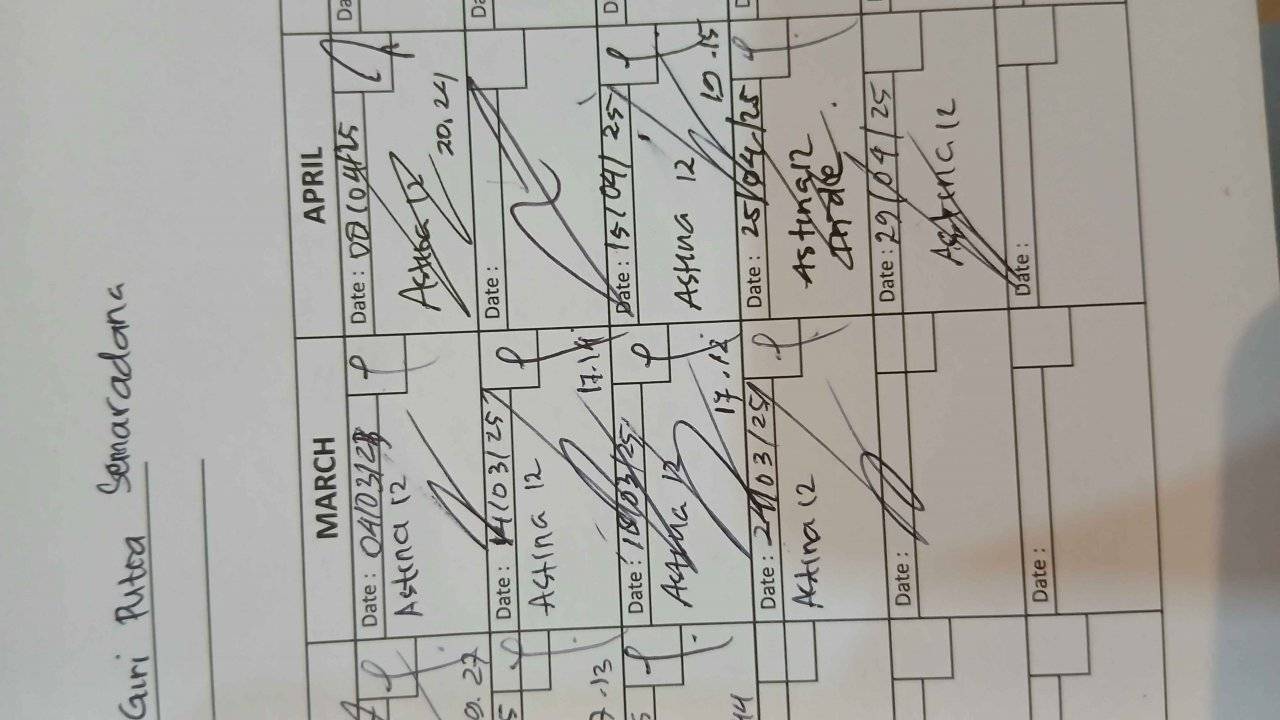 Giri Putra Semaradana
MARCH
Date : 04/03/25
Astina 12
Date : 14/03/25
Astina 12
17.14
Date : 18/03/25
Astina 12
17.12
Date : 24/03/25
Astina 12
Date :
Date :
APRIL
Date : 00/04/25
Astina 12
20.24
Date :
Date : 15/04/25
Astina 12
19.15
Date : 25/04/25
Astina 12
Date : 29/04/25
Astina 12
Date :